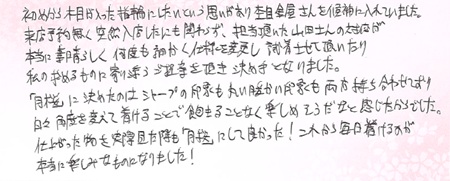 初めから木目が入った指輪にしたいという思いがあり杢目金屋さんを候補に入れていました。
来店予約無く突然入店したにも関わらず、担当頂いた山田さんの対応が
本当に素晴らしく何度も細かく仕様を変更し試着させて頂いたり
私の求めるものに寄り添うご提案を頂き決め手となりました。
「月桜」に決めたのはシャープの印象も丸い暖かい印象も両方持ち合わせており
日々角度を変えて着けることで飽きることなく楽しめそうだなと感じたからでした。
仕上がった物を実際見た際も「月桜」にして良かった!これから毎日着けるのが
本当に楽しみなものになりました!